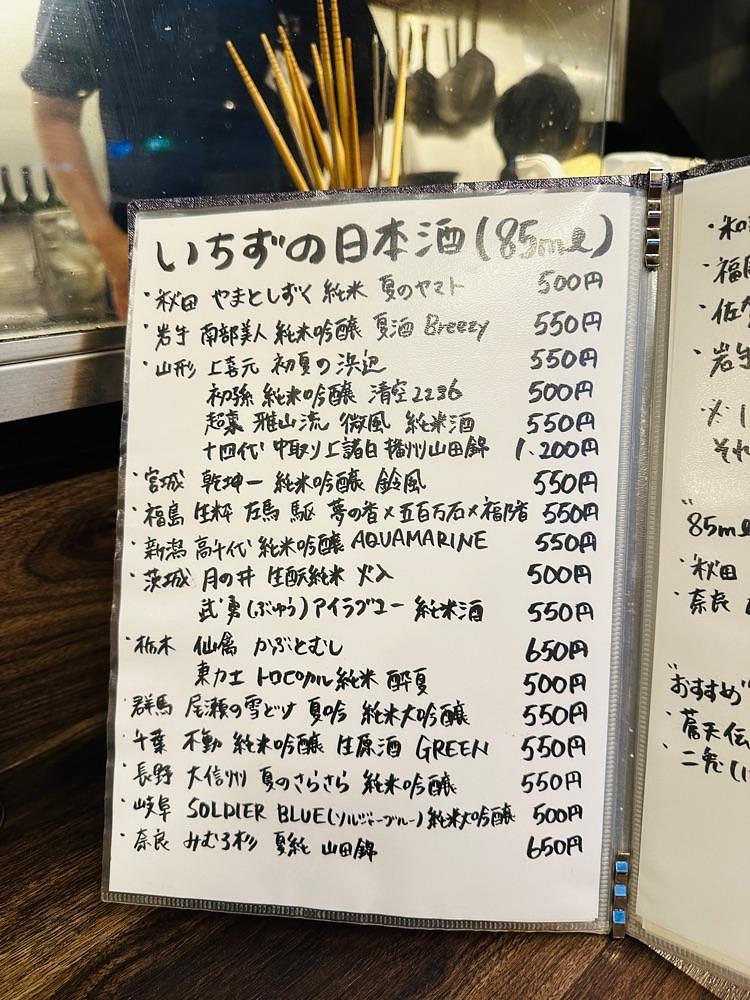 いちずの日本酒(85mℓ)
・秋田 やまとしずく 純米 夏のヤマト 500円
・岩手 南部美人 純米吟醸 夏酒 Breezy 550円
・山形 上喜元 初夏の浜辺 550円
初孫 純米吟醸 清空2236 500円
超裏 雅山流 微風 純米酒 550円
十四代 中取り上諸白 播州山田錦 1,200円
・宮城 乾坤一 純米吟醸 鈴風 550円
・福島 生粋 左馬 駆 夢の香×五百万石×福乃香 550円
・新潟 高千代 純米吟醸 AQUAMARINE 550円
・茨城 月の井 生酛純米 火入 500円
武勇(ぶゆう)アイラブユー 純米酒 550円
・栃木 仙禽 かぶとむし 650円
東力士 トロピカル純米 酔夏 500円
・群馬 尾瀬の雪どけ 夏吟 純米大吟醸 550円
・千葉 不動 純米吟醸 生原酒 GREEN 550円
・長野 大信州 夏のさらさら 純米吟醸 550円
・岐阜 SOLDIER BLUE(ソルジャーブルー)純米大吟醸 500円
・奈良 みむろ杉 夏純 山田錦 650円
・秋田
・福島
・佐
・岩手
それ
"85mℓ
・秋田
・奈良
"おすすめ"
・蒼天伝
・二兎(